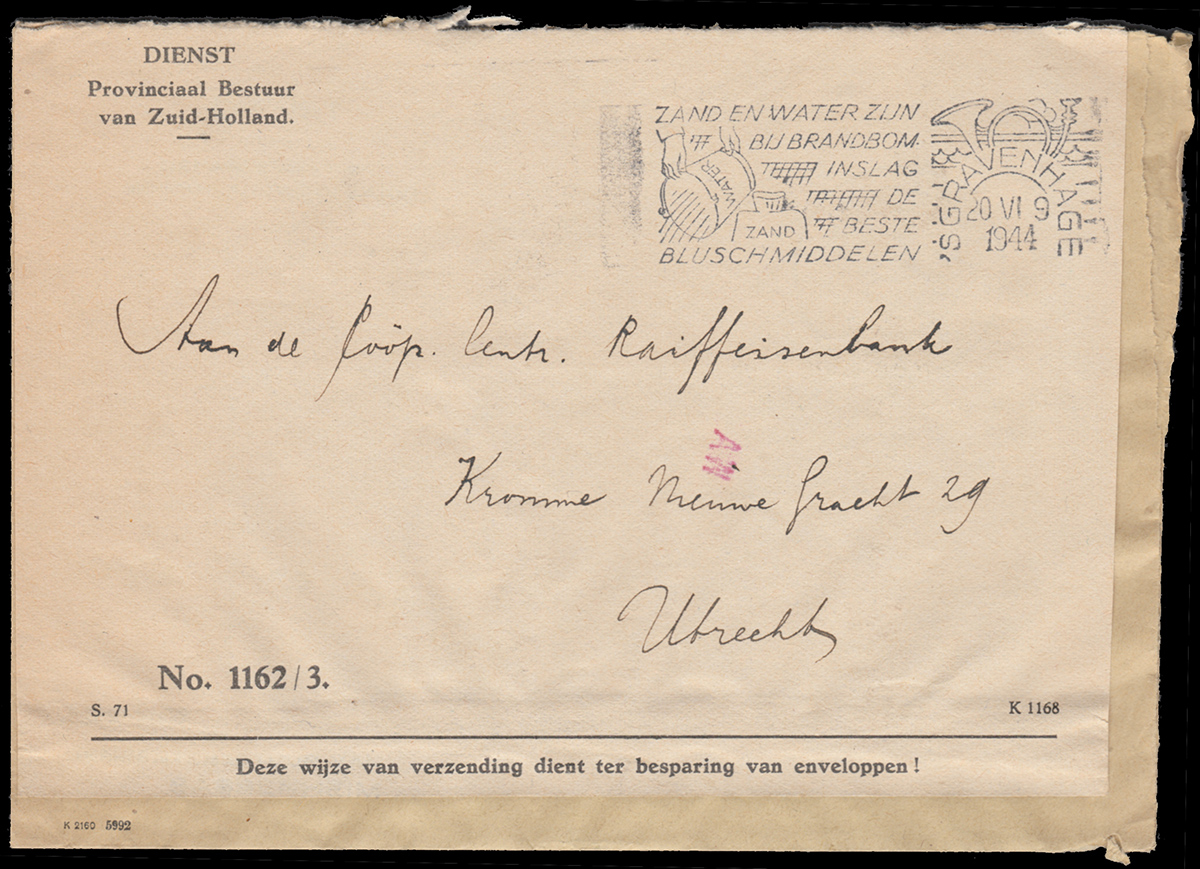 DIENST
Provinciaal Bestuur
van Zuid-Holland.
ZAND EN WATER ZIJN
BIJ BRANDBOM-
INSLAG
DE
BESTE
BLUSCHMIDDELEN
WATER
ZAND
'S GRAVENHAGE
20 VI 9
1944
Aan de Coöp. Centr. Raiffeisenbank
AW
Kromme Nieuwe Gracht 29
Utrecht
No. 1162/3.
S. 71
K 1168
Deze wijze van verzending dient ter besparing van enveloppen!
K 2160 5992